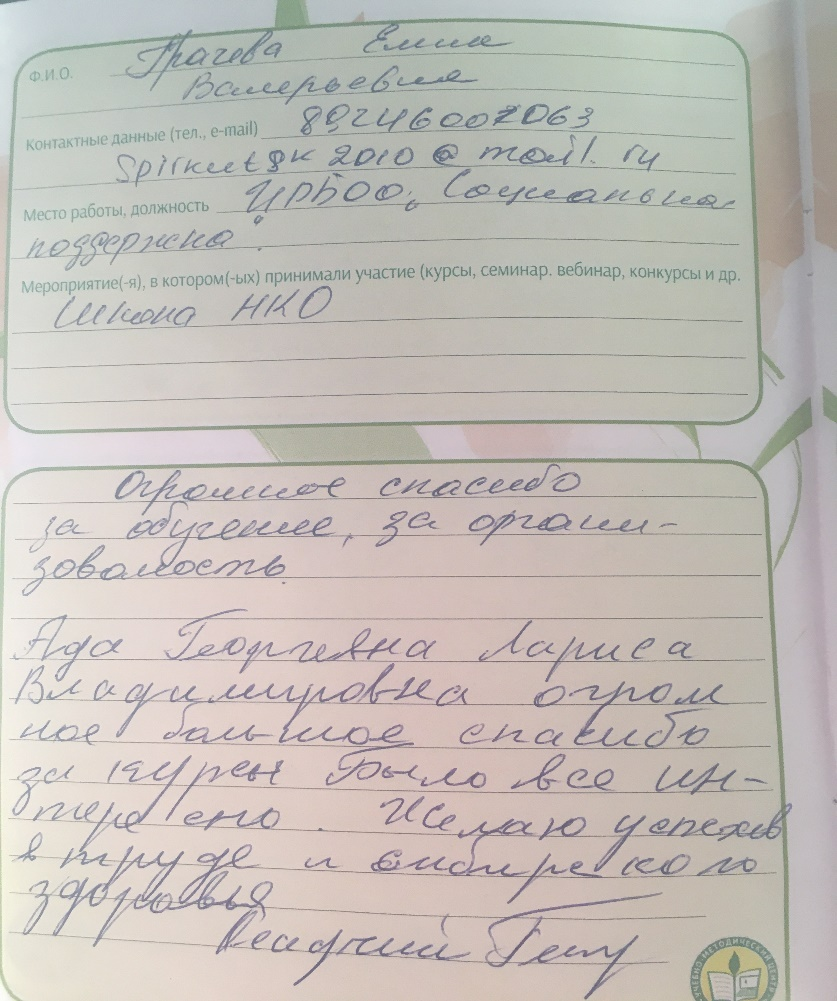 Ф.И.О. Грачева Елена
Валерьевна
Контактные данные (тел., e-mail) 89246007063
2010@mail.ru
Место работы, должность ИРБОО, Социальная
поддержка.
Мероприятие(-я), в котором(-ых) принимали участие (курсы, семинар. вебинар, конкурсы и др.
Школа НКО
Огромное спасибо
за обучение, за органи-
зованность
Ада Георгиевна Лариса
Владимировна огром
ное большое спасибо
за курсы Было все ин-
тересно. Желаю успехов
в труде и сибирского
здоровья